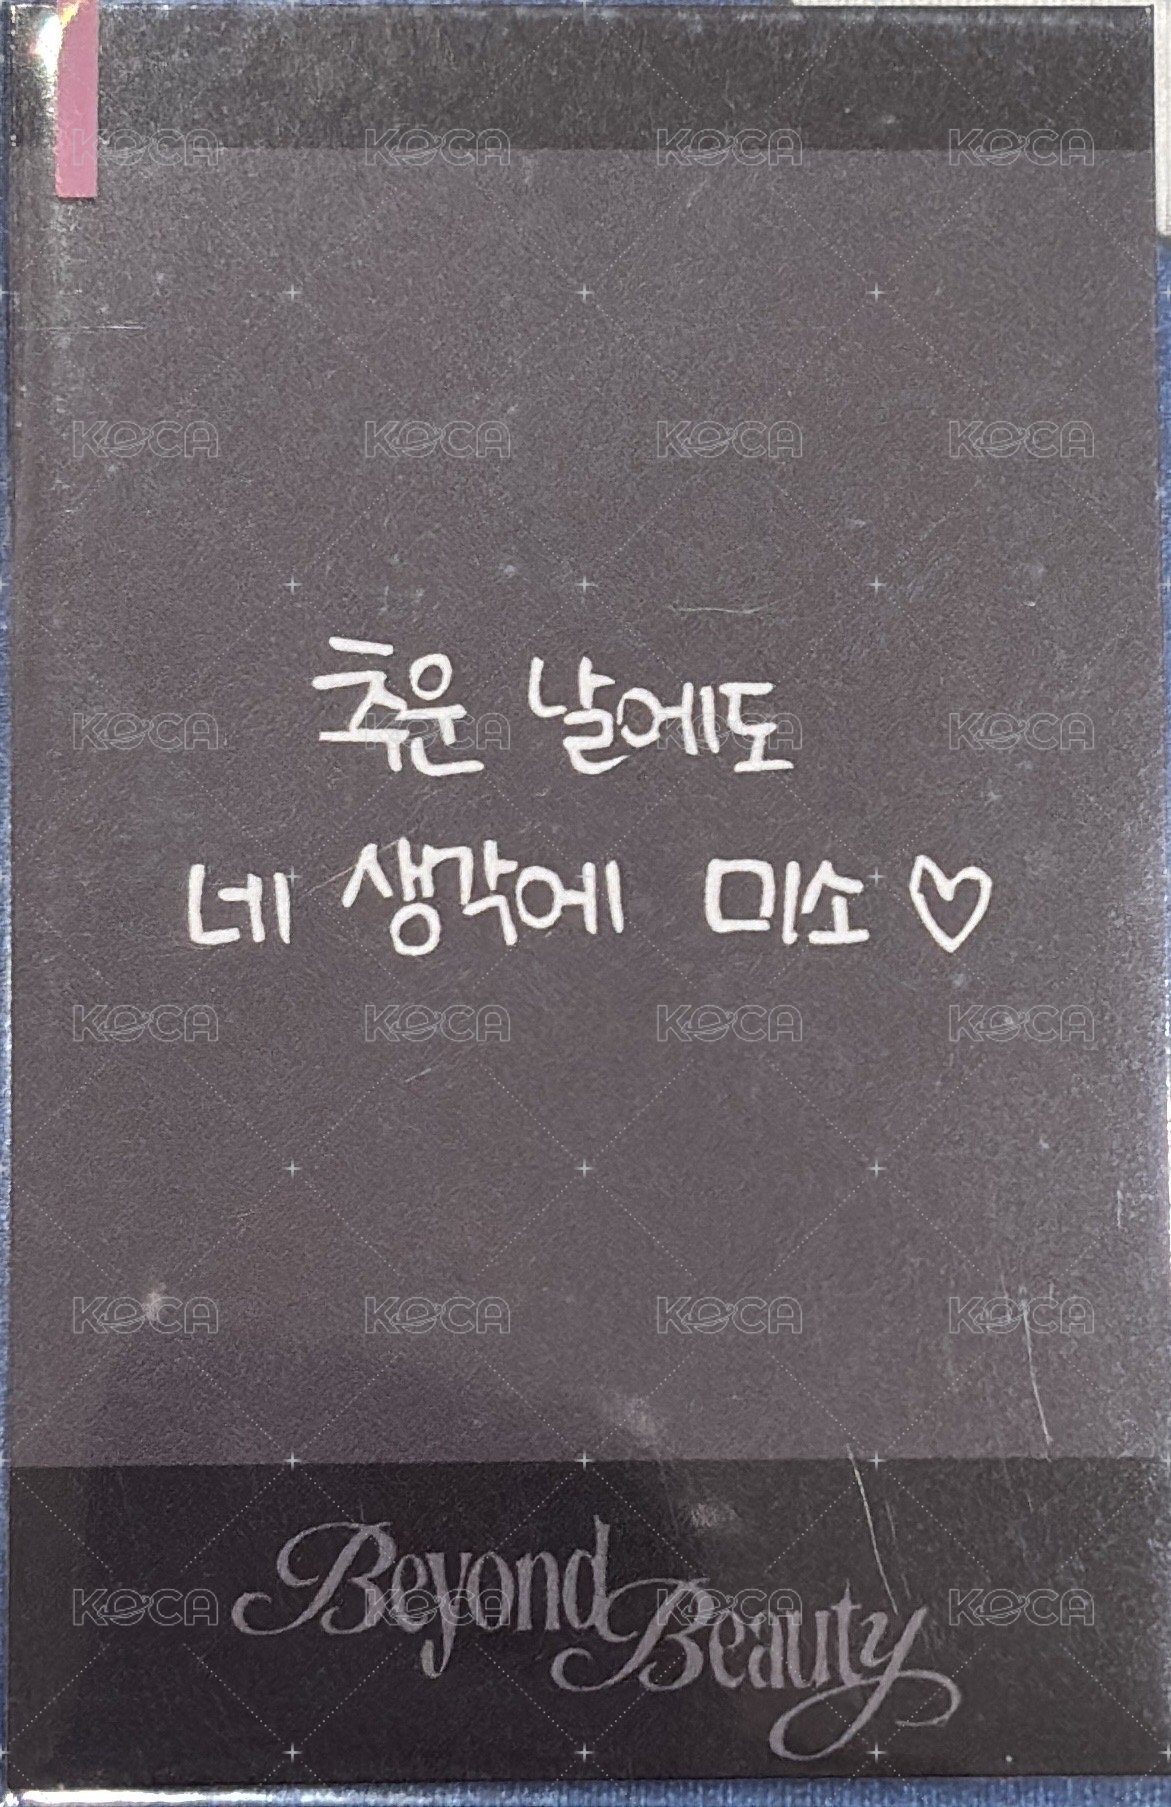 추운 날에도
네 생각에 미소 ♡
Beyond
Beauty
KOCA KOCA KOCA KOCA
KOCA KOCA KOCA KOCA
KOCA KOCA KOCA KOCA
KOCA KOCA KOCA KOCA
KOCA KOCA KOCA KOCA
KOCA KOCA KOCA KOCA